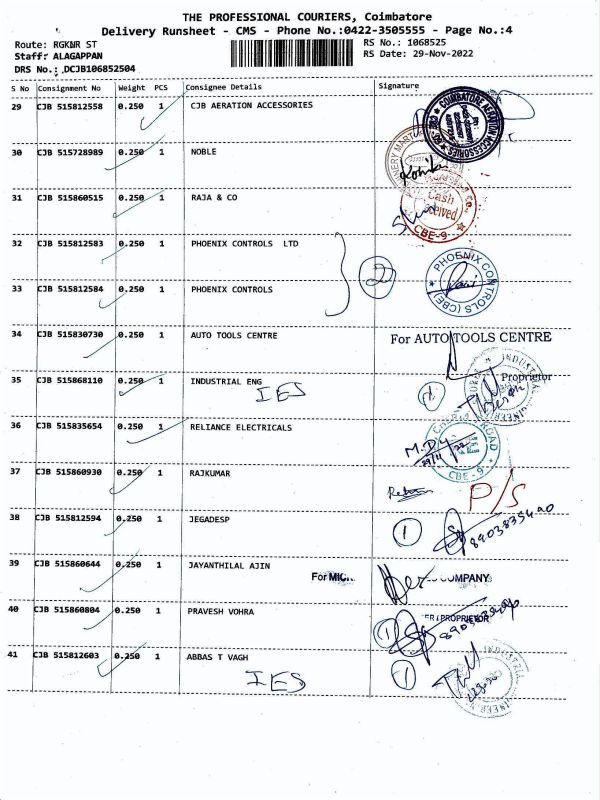 THE PROFESSIONAL COURIERS, Coimbatore
Delivery Runsheet - CMS - Phone No.:0422-3505555 - Page No.:4
Route: RGKNR ST RS No.: 1068525
Staff: ALAGAPPAN RS Date: 29-Nov-2022
DRS No.: DCJB106852504
S No Consignment No Weight PCS Consignee Details Signature
29 CJB 515812558 0.250 1 CJB AERATION ACCESSORIES
COIMBATORE AERATION ACCESSORIES
30 CJB 515728989 0.250 1 NOBLE
31 CJB 515860515 0.250 1 RAJA & CO
Cash
Received
CBE-9
32 CJB 515812583 0.250 1 PHOENIX CONTROLS LTD
2
PHOENIX CONTROLS (CBE)
33 CJB 515812584 0.250 1 PHOENIX CONTROLS
34 CJB 515830730 0.250 1 AUTO TOOLS CENTRE
For AUTO TOOLS CENTRE
Proprietor
35 CJB 515868110 0.250 1 INDUSTRIAL ENG
IES
1
36 CJB 515835654 0.250 1 RELIANCE ELECTRICALS
29/11/22
ROAD
CBE - 9
37 CJB 515860930 0.250 1 RAJKUMAR
P/S
38 CJB 515812594 0.250 1 JEGADESP
1
39 CJB 515860644 0.250 1 JAYANTHILAL AJIN
For COMPANY
40 CJB 515860804 0.250 1 PRAVESH VOHRA
PROPRIETOR
1
41 CJB 515812603 0.250 1 ABBAS T VAGH
IES
1